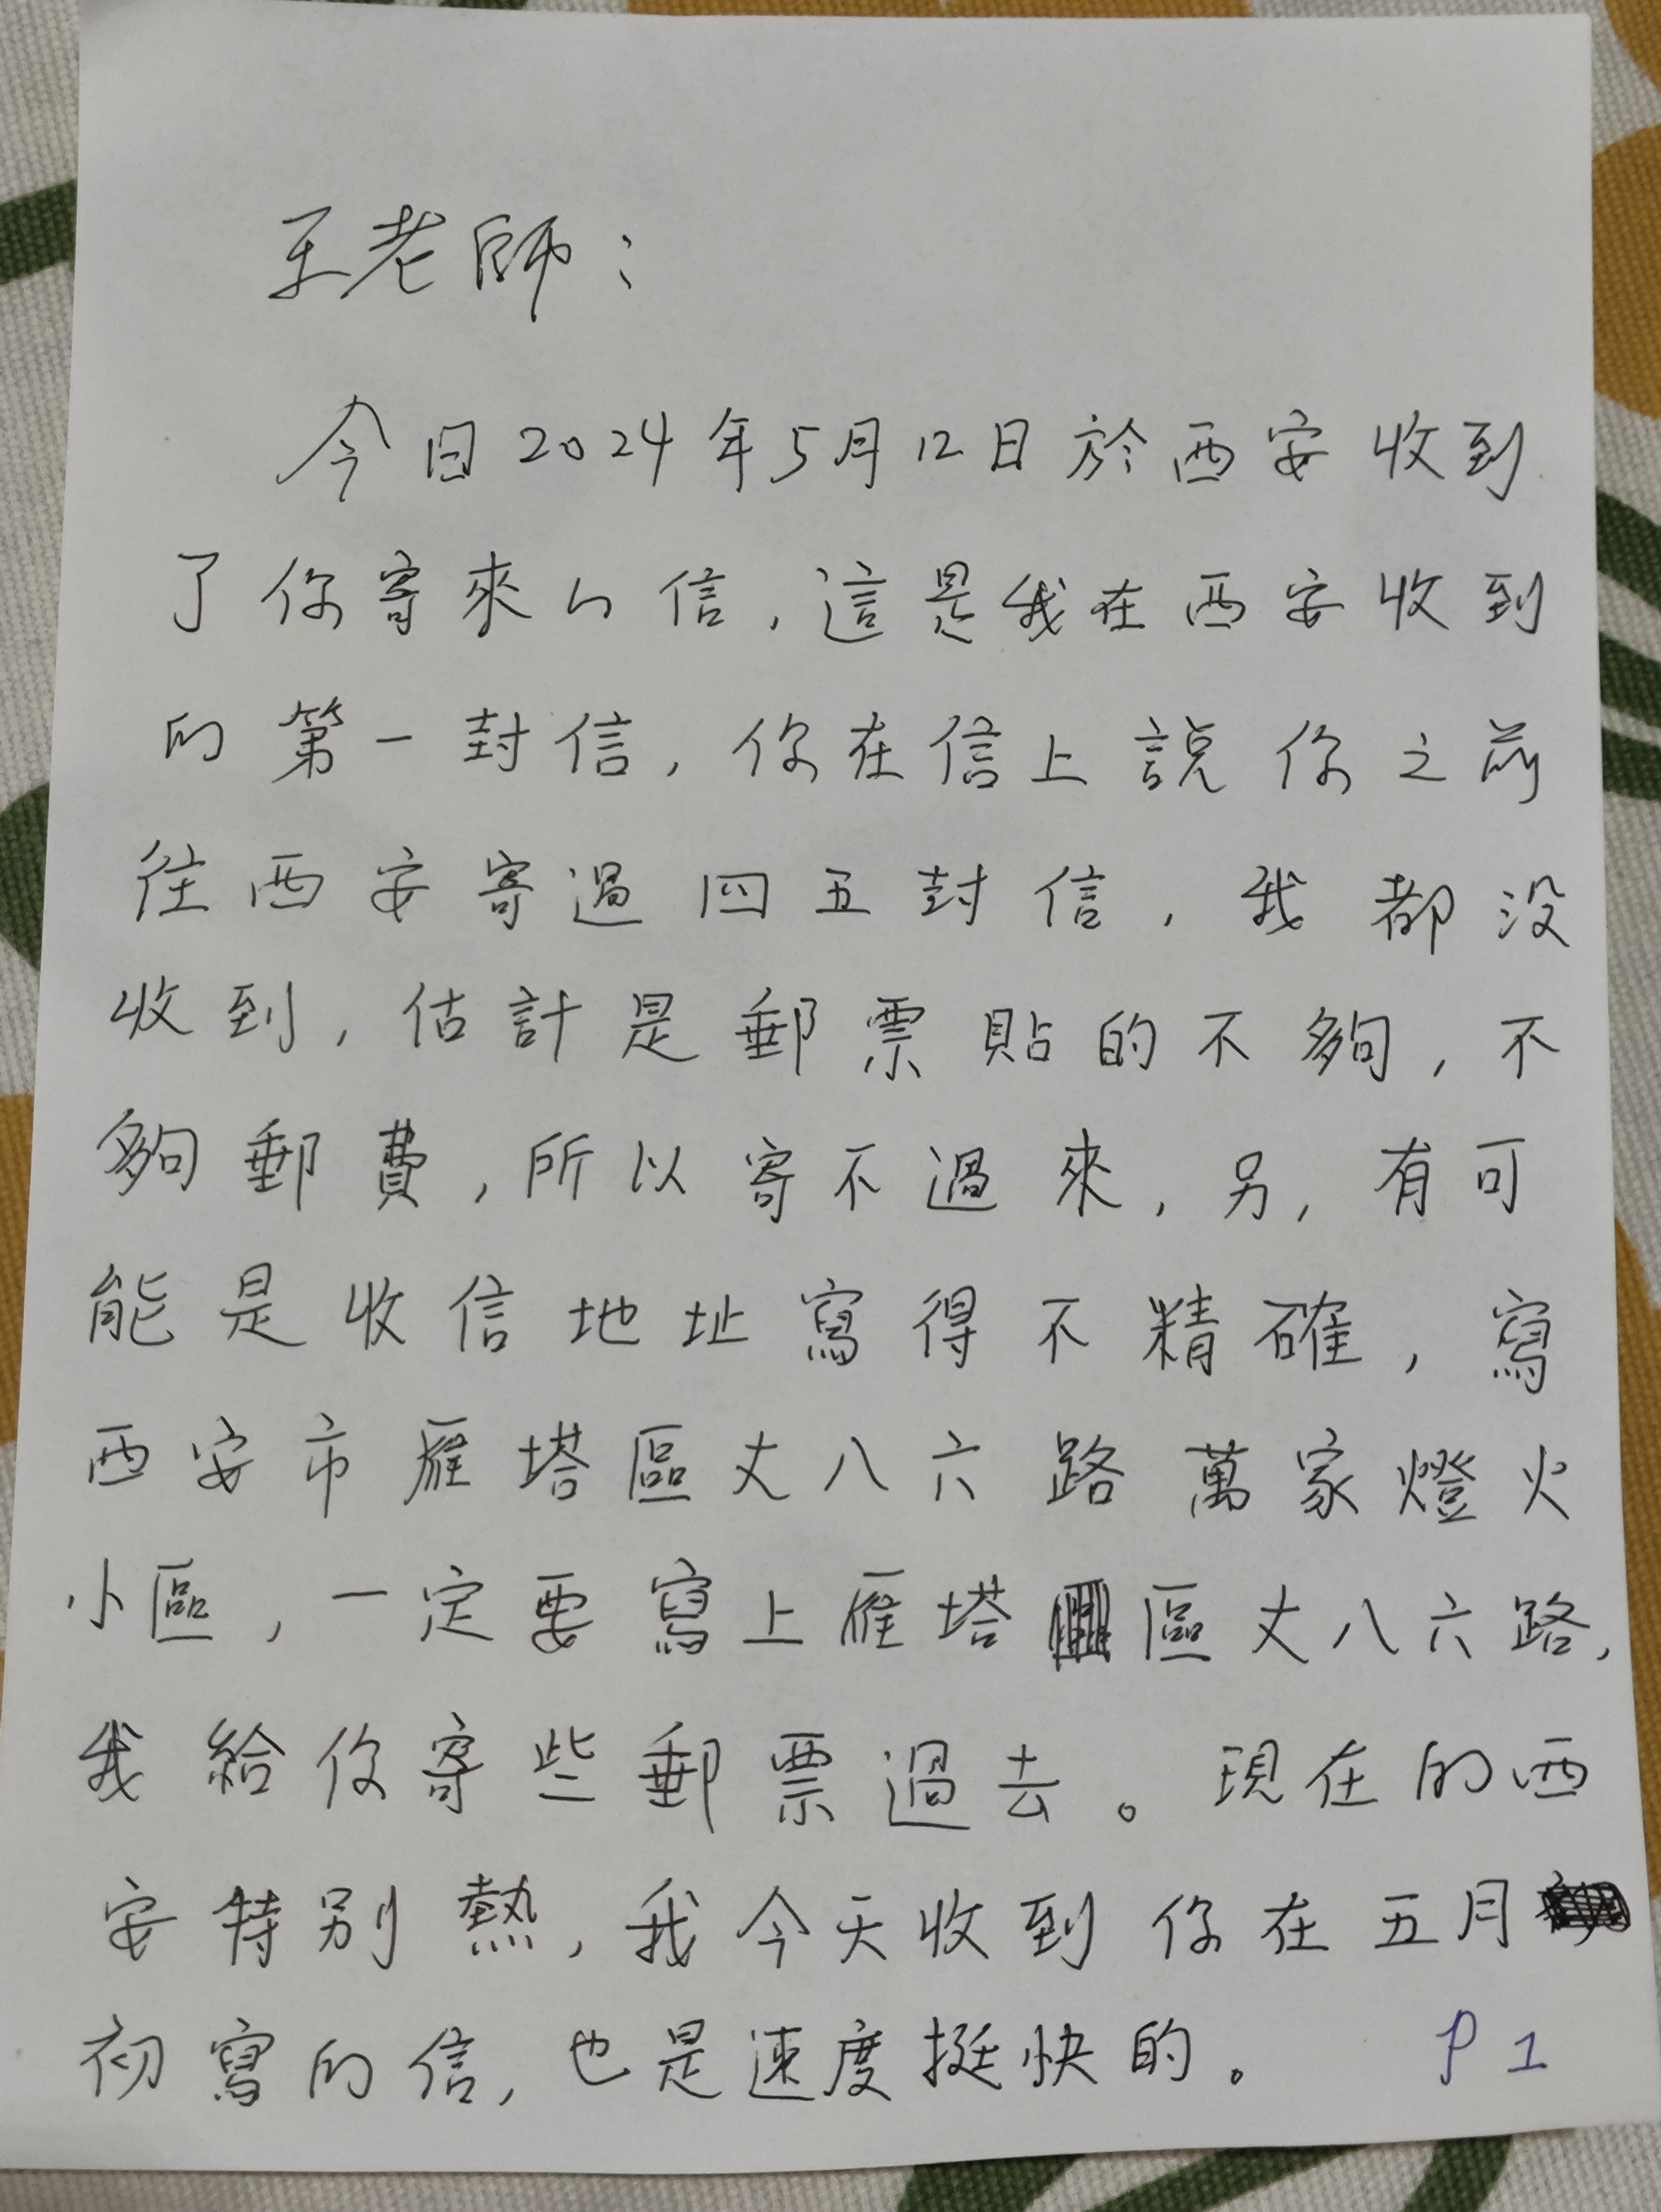 王老師：
今日2024年5月12日於西安收到
了你寄來的信，這是我在西安收到
的第一封信，你在信上説你之前
往西安寄過四五封信，我都没
收到，估計是郵票貼的不夠，不
夠郵費，所以寄不過來，另，有可
能是收信地址寫得不精確，寫
西安市雁塔區丈八六路萬家燈火
小區，一定要寫上雁塔區丈八六路，
我給你寄些郵票過去。現在的西
安特别熱，我今天收到你在五月
初寫的信，也是速度挺快的。 P1